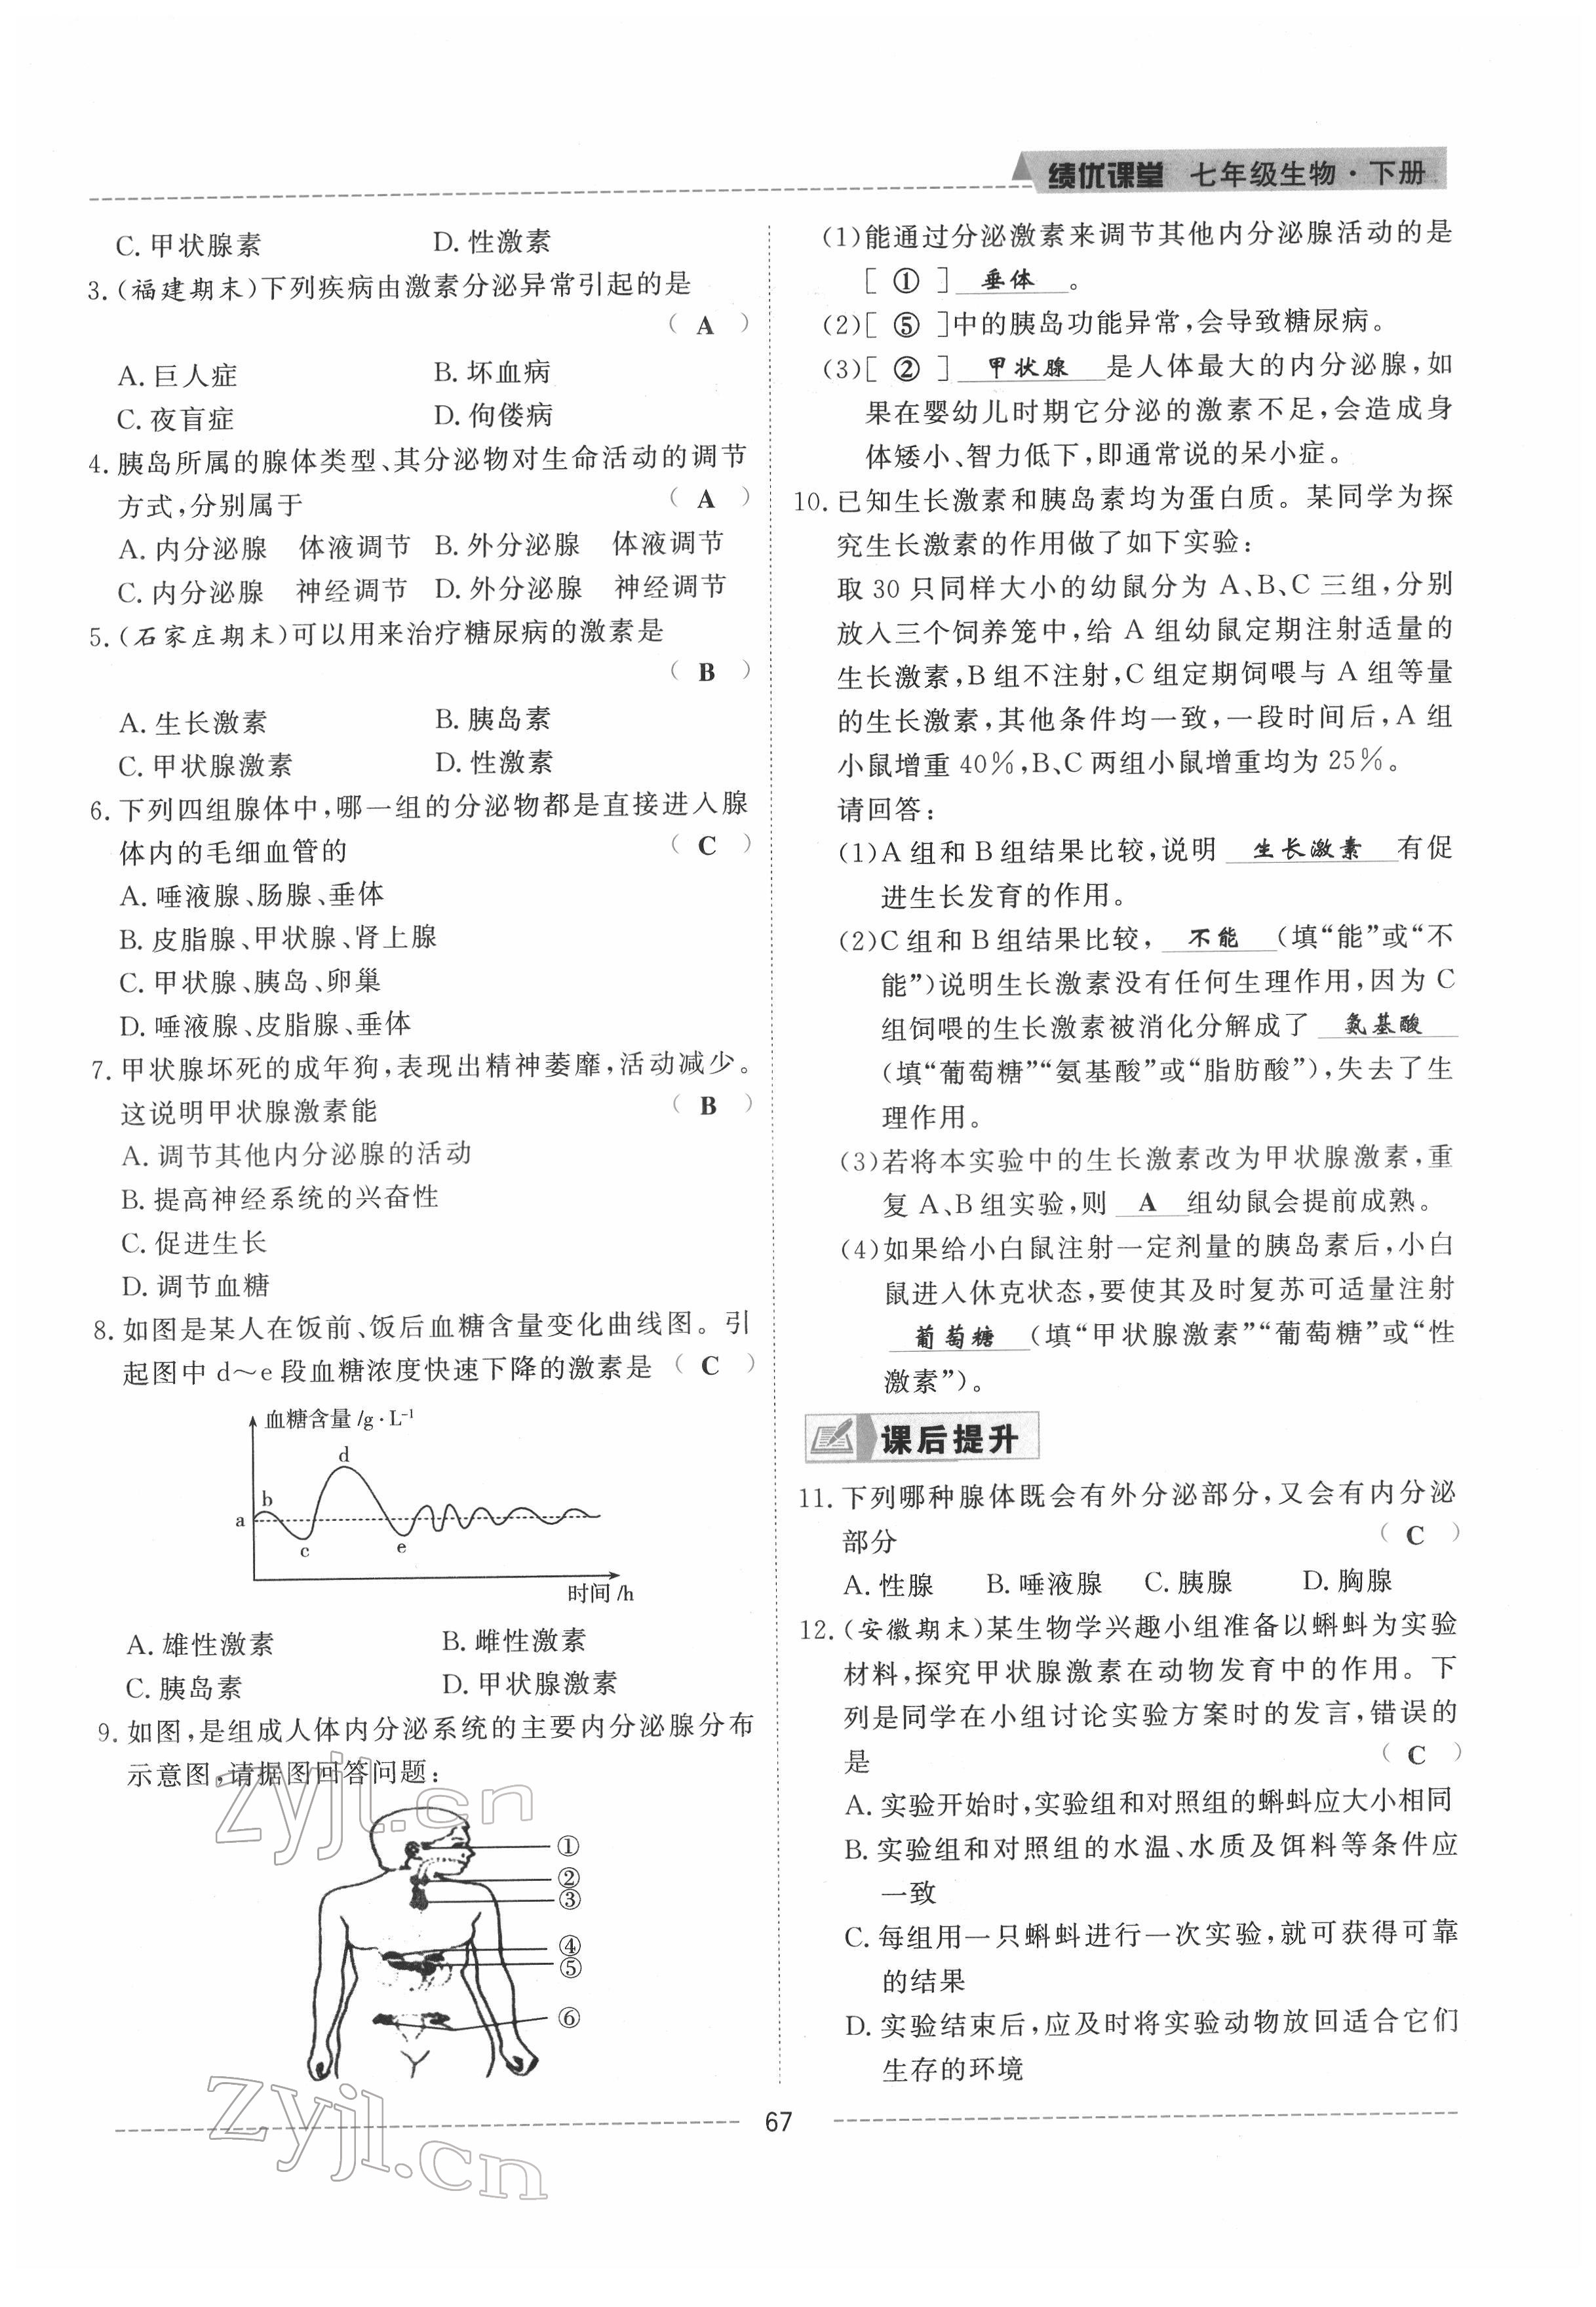 绩优课堂 七年级生物·下册
C. 甲状腺素 D. 性激素
3. (福建期末)下列疾病由激素分泌异常引起的是
( A )
A. 巨人症 B. 坏血病
C. 夜盲症 D. 佝偻病
4. 胰岛所属的腺体类型、其分泌物对生命活动的调节
方式,分别属于 ( A )
A. 内分泌腺 体液调节 B. 外分泌腺 体液调节
C. 内分泌腺 神经调节 D. 外分泌腺 神经调节
5. (石家庄期末)可以用来治疗糖尿病的激素是
( B )
A. 生长激素 B. 胰岛素
C. 甲状腺激素 D. 性激素
6. 下列四组腺体中,哪一组的分泌物都是直接进入腺
体内的毛细血管的 ( C )
A. 唾液腺、肠腺、垂体
B. 皮脂腺、甲状腺、肾上腺
C. 甲状腺、胰岛、卵巢
D. 唾液腺、皮脂腺、垂体
7. 甲状腺坏死的成年狗,表现出精神萎靡,活动减少。
这说明甲状腺激素能 ( B )
A. 调节其他内分泌腺的活动
B. 提高神经系统的兴奋性
C. 促进生长
D. 调节血糖
8. 如图是某人在饭前、饭后血糖含量变化曲线图。引
起图中 d～e 段血糖浓度快速下降的激素是 ( C )
血糖含量/g·L⁻¹
d
b
a
c
e
时间/h
A. 雄性激素 B. 雌性激素
C. 胰岛素 D. 甲状腺激素
9. 如图,是组成人体内分泌系统的主要内分泌腺分布
示意图,请据图回答问题:
zyjl.cn
①
②
③
④
⑤
⑥
zyjl.cn
(1)能通过分泌激素来调节其他内分泌腺活动的是
[ ① ] 垂体 。
(2)[ ⑤ ]中的胰岛功能异常,会导致糖尿病。
(3)[ ② ] 甲状腺 是人体最大的内分泌腺,如
果在婴幼儿时期它分泌的激素不足,会造成身
体矮小、智力低下,即通常说的呆小症。
10. 已知生长激素和胰岛素均为蛋白质。某同学为探
究生长激素的作用做了如下实验:
取 30 只同样大小的幼鼠分为 A、B、C 三组,分别
放入三个饲养笼中,给 A 组幼鼠定期注射适量的
生长激素,B 组不注射,C 组定期饲喂与 A 组等量
的生长激素,其他条件均一致,一段时间后,A 组
小鼠增重 40%,B、C 两组小鼠增重均为 25%。
请回答:
(1)A 组和 B 组结果比较,说明 生长激素 有促
进生长发育的作用。
(2)C 组和 B 组结果比较, 不能 (填“能”或“不
能”)说明生长激素没有任何生理作用,因为 C
组饲喂的生长激素被消化分解成了 氨基酸
(填“葡萄糖”“氨基酸”或“脂肪酸”),失去了生
理作用。
(3)若将本实验中的生长激素改为甲状腺激素,重
复 A、B 组实验,则 A 组幼鼠会提前成熟。
(4)如果给小白鼠注射一定剂量的胰岛素后,小白
鼠进入休克状态,要使其及时复苏可适量注射
葡萄糖 (填“甲状腺激素”“葡萄糖”或“性
激素”)。
课后提升
11. 下列哪种腺体既会有外分泌部分,又会有内分泌
部分 ( C )
A. 性腺 B. 唾液腺 C. 胰腺 D. 胸腺
12. (安徽期末)某生物学兴趣小组准备以蝌蚪为实验
材料,探究甲状腺激素在动物发育中的作用。下
列是同学在小组讨论实验方案时的发言,错误的
是 ( C )
A. 实验开始时,实验组和对照组的蝌蚪应大小相同
B. 实验组和对照组的水温、水质及饵料等条件应
一致
C. 每组用一只蝌蚪进行一次实验,就可获得可靠
的结果
D. 实验结束后,应及时将实验动物放回适合它们
生存的环境
67